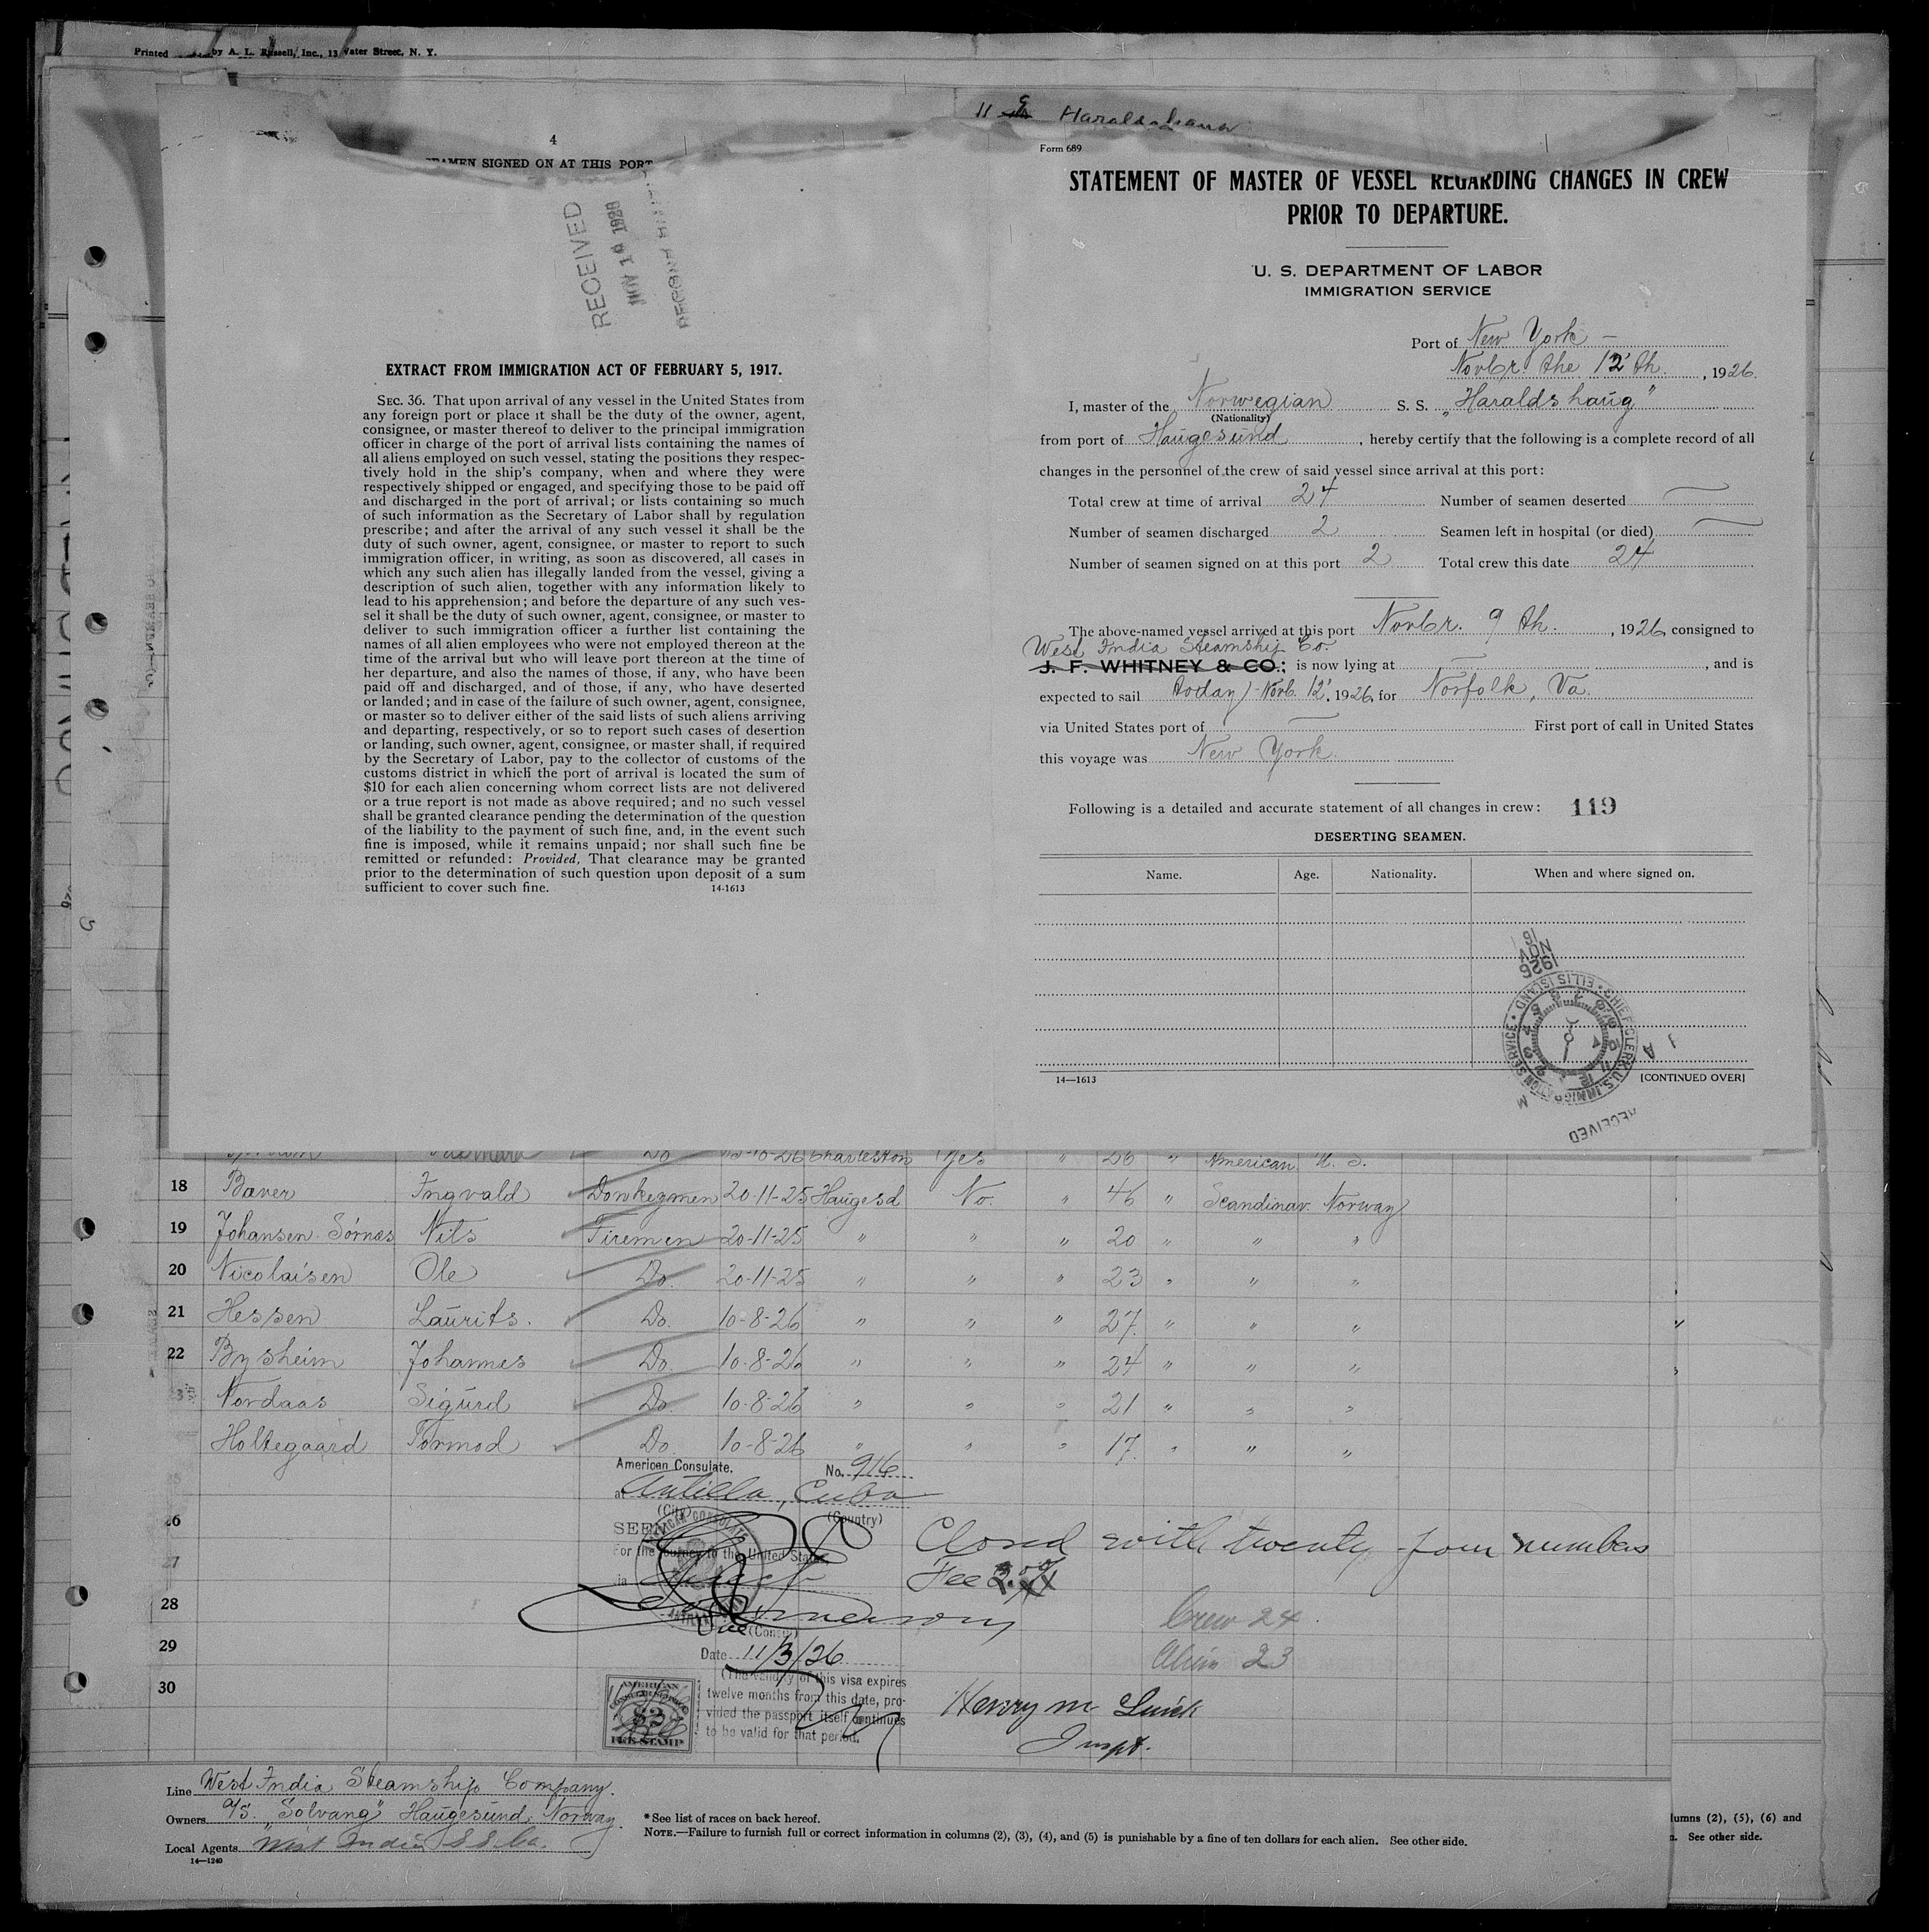 Printed by A. L. Russell, Inc., 13 Water Street, N. Y.
11
4
SEAMEN SIGNED ON AT THIS PORT
RECEIVED
NOV 1
EXTRACT FROM IMMIGRATION ACT OF FEBRUARY 5, 1917.
SEC. 36. That upon arrival of any vessel in the United States from
any foreign port or place it shall be the duty of the owner, agent,
consignee, or master thereof to deliver to the principal immigration
officer in charge of the port of arrival lists containing the names of
all aliens employed on such vessel, stating the positions they respec-
tively hold in the ship's company, when and where they were
respectively shipped or engaged, and specifying those to be paid off
and discharged in the port of arrival; or lists containing so much
of such information as the Secretary of Labor shall by regulation
prescribe; and after the arrival of any such vessel it shall be the
duty of such owner, agent, consignee, or master to report to such
immigration officer, in writing, as soon as discovered, all cases in
which any such alien has illegally landed from the vessel, giving a
description of such alien, together with any information likely to
lead to his apprehension; and before the departure of any such ves-
sel it shall be the duty of such owner, agent, consignee, or master to
deliver to such immigration officer a further list containing the
names of all alien employees who were not employed thereon at the
time of the arrival but who will leave port thereon at the time of
her departure, and also the names of those, if any, who have been
paid off and discharged, and of those, if any, who have deserted
or landed; and in case of the failure of such owner, agent, consignee,
or master so to deliver either of the said lists of such aliens arriving
and departing, respectively, or so to report such cases of desertion
or landing, such owner, agent, consignee, or master shall, if required
by the Secretary of Labor, pay to the collector of customs of the
customs district in which the port of arrival is located the sum of
$10 for each alien concerning whom correct lists are not delivered
or a true report is not made as above required; and no such vessel
shall be granted clearance pending the determination of the question
of the liability to the payment of such fine, and, in the event such
fine is imposed, while it remains unpaid; nor shall such fine be
remitted or refunded: Provided, That clearance may be granted
prior to the determination of such question upon deposit of a sum
sufficient to cover such fine. 14-1613
Form 689
STATEMENT OF MASTER OF VESSEL REGARDING CHANGES IN CREW
PRIOR TO DEPARTURE.
U. S. DEPARTMENT OF LABOR
IMMIGRATION SERVICE
Port of New York —
Novbr. the 12' th., 1926.
I, master of the Norwegian S. S. „Haraldshaug"
(Nationality)
from port of Haugesund, hereby certify that the following is a complete record of all
changes in the personnel of the crew of said vessel since arrival at this port:
Total crew at time of arrival 24 Number of seamen deserted —
Number of seamen discharged 2 Seamen left in hospital (or died) —
Number of seamen signed on at this port 2 Total crew this date 24
The above-named vessel arrived at this port Novbr. 9 th., 1926, consigned to
West India Steamship Co.
J. F. WHITNEY & CO.; is now lying at —, and is
expected to sail today - Novb. 12', 1926, for Norfolk, Va.
via United States port of — First port of call in United States
this voyage was New York.
Following is a detailed and accurate statement of all changes in crew: 119
DESERTING SEAMEN.
Name. Age. Nationality. When and where signed on.
NOV
1926
CHIEF CLERK, U.S. IMMIGRATION SERVICE • ELLIS ISLAND •
RECEIVED
14—1613 [CONTINUED OVER]
Do 26 Charleston Yes " 26 " American U. S.
18 Bæver Ingvald Donkeymen 20-11-25 Haugesd No. " 46 " Scandinav. Norway
19 Johansen Sørnæs Nils Firemen 20-11-25 " " " 20 " " "
20 Nicolaisen Ole Do. 20-11-25 " " " 23 " " "
21 Hessen Laurits. Do. 10-8-26 " " " 27. " " "
22 Bysheim Johannes Do. 10-8-26 " " " 24 " " "
Nordaas Sigurd Do. 10-8-26 " " " 21 " " "
Holtegaard Tormod Do. 10-8-26 " " " 17. " " "
American Consulate, No. 916
at Antilla, Cuba
(City) (Country)
26
SEEN
Closed with twenty-four numbers
27
For the journey to the United States
via Direct
Fee
28
Crew 24
(Consul)
29
Date 11/3/26
Alien 23
30
(The validity of this visa expires
twelve months from this date, pro-
vided the passport itself continues
to be valid for that period.
AMERICAN
$2
FEE STAMP
Henry M
Inspt.
Line West India Steamship Company.
Owners A/S. „Solvang" Haugesund, Norway.
Local Agents West India S S. Co.
14—1240
*See list of races on back hereof.
NOTE.—Failure to furnish full or correct information in columns (2), (3), (4), and (5) is punishable by a fine of ten dollars for each alien. See other side.
lumns (2), (5), (6) and
See other side.